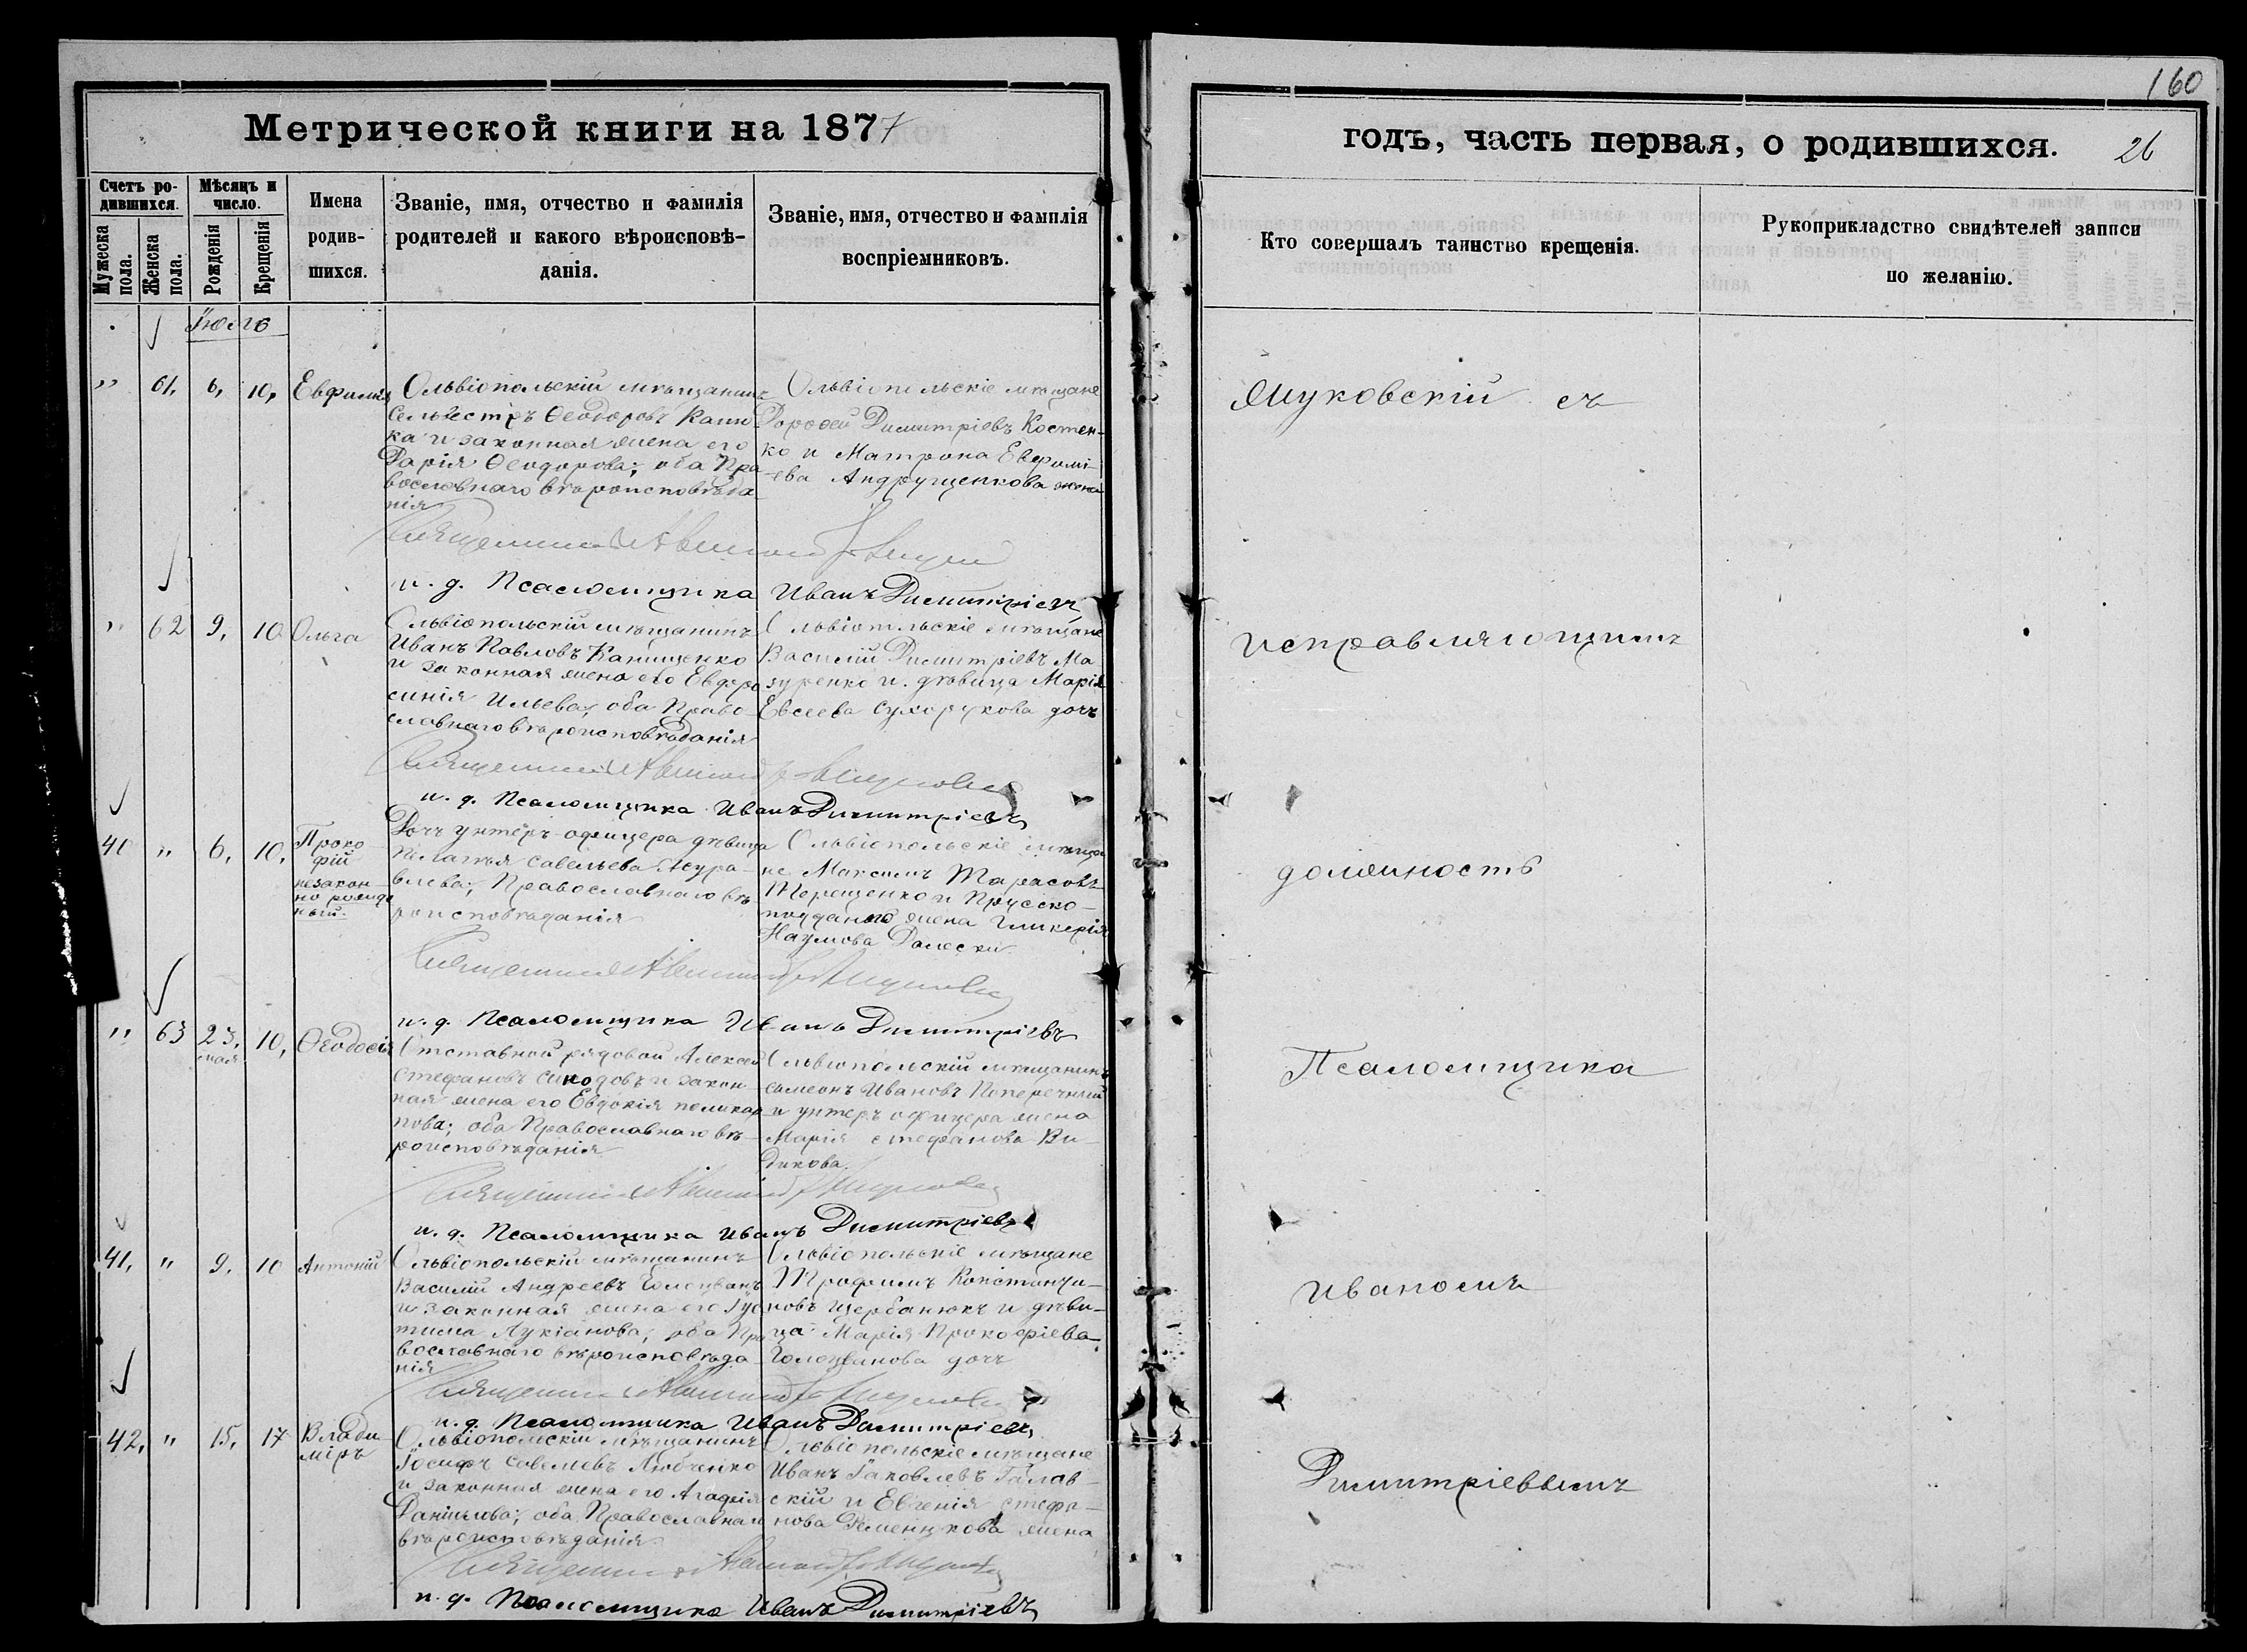 160
Метрической книги на 1877
годъ, часть первая, о родившихся. 26
Счетъ ро-
дившихся.
Мѣсяцъ и
число.
Мужеска
пола.
Женска
пола.
Рожденія
Крещенія
Имена
родив-
шихся.
Званіе, имя, отчество и фамилія
родителей и какого вѣроисповѣ-
данія.
Званіе, имя, отчество и фамилія
воспріемниковъ.
Кто совершалъ таинство крещенія.
Рукоприкладство свидѣтелей записи
по желанію.
Іюль
" 61, 6, 10, Евфимія
Ольвіопольскій мѣщанинъ
Сельвестръ Ѳеодоровъ
ка и законная жена его
Дарія Ѳеодорова; оба Пра
вославнаго вѣроисповѣда
нія
Ольвіопольскіе мѣщане
Дороѳей Димитріевъ Костен-
ко и Матрона Евфимі-
ева Андрущенкова жена
Священникъ
и. д. Псаломщика Иванъ Димитріевъ
" 62 9, 10 Ольга
Ольвіопольскій мѣщанинъ
Иванъ Павловъ Канищенко
и законная жена его Евфро
синія Ильева; оба Право-
славнаго вѣроисповѣданія
Ольвіопольскіе мѣщане
Василій Димитріевъ Ма
зуренко и дѣвица Марія
Евсеева Сухорукова дочь
Священникъ
и. д. Псаломщика Иванъ Димитріевъ
40 " 6, 10, Проко
фій
незакон
но рожде
ный.
Дочь унтеръ-офицера дѣвица
Пелагія Савельева Жура-
влева; Православнаго вѣ
роисповѣданія
Ольвіопольскіе мѣща
не Максимъ Тарасовъ
Терещенко и Прусско-
подданаго жена Гликерія
Наумова Далески
Священникъ
и. д. Псаломщика Иванъ Димитріевъ
" 63 23, 10, Ѳеодосія
мая
Отставной рядовой Алексѣй
Стефановъ и закон
ная жена его Евдокія Поликар
пова; оба Православнаго вѣ-
роисповѣданія
Ольвіопольскій мѣщанинъ
Симеонъ Ивановъ Поперечный
и унтеръ офицера жена
Марія Стефанова Ви-
дикова.
Священникъ
и. д. Псаломщика Иванъ Димитріевъ
41, " 9, 10 Антоній
Ольвіопольскій мѣщанинъ
Василій Андреевъ Голоцванъ
и законная жена его Іус
тина Лукіанова; оба Пра
вославнаго вѣроисповѣда
нія
Ольвіопольскіе мѣщане
Трофимъ Константи-
новъ Щербанюкъ и дѣви-
ца Марія Прокофіева
Голоцванова дочь
Священникъ
и. д. Псаломщика Иванъ Димитріевъ
42, " 15, 17 Влади
міръ
Ольвіопольскій мѣщанинъ
Іосифъ Савельевъ Любченко
и законная жена его Агафія
Даніилова; оба Православнаго
вѣроисповѣданія
Ольвіопольскіе мѣщане
Иванъ Іаковлевъ Галав-
скій и Евгенія Стефа-
нова Деменчкова жена
Священникъ
и. д. Псаломщика Иванъ Димитріевъ
съ
исправляющимъ
должность
Псаломщика
Иваномъ
Димитріевымъ